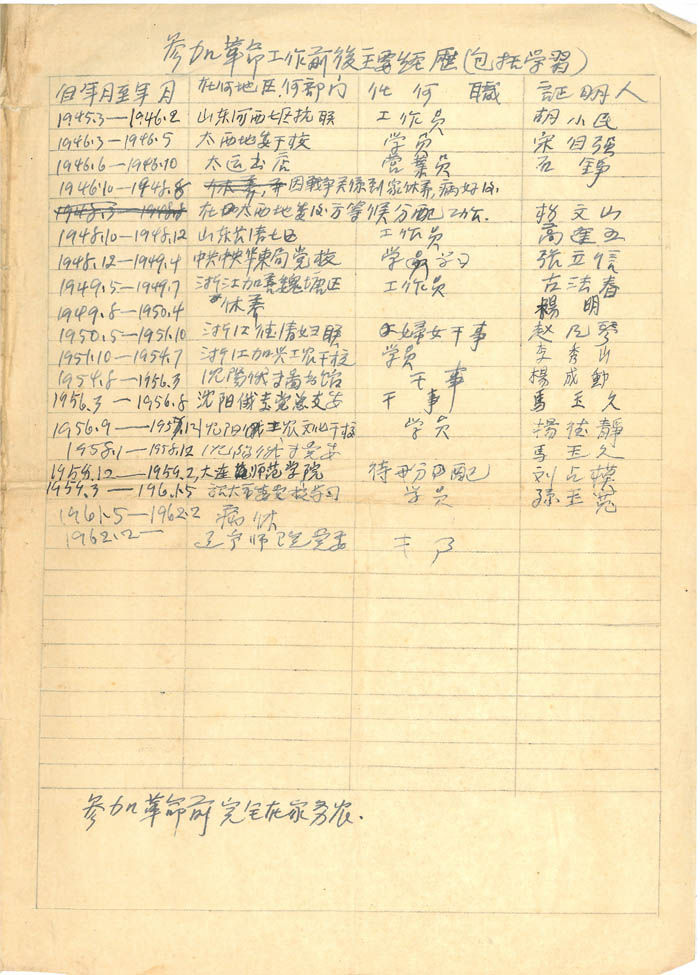 参加革命工作前後主要經歷(包括学習)
自年月至年月 在何地区.何部门 任何職 証明人
1945.3—1946.2 山东河西七区抗联 工作员 胡小民
1946.3—1946.5 太西地委干校 学员 宋自强
1946.6—1946.10 太运书店 营業员 石錚
1946.10—1948.8 因戰争关係到家休养,病好后
1948.3—1948.8 在太西地委后方等候分配工作. 文山
1948.10—1948.12 山东长清七区 工作员 高
1948.12—1949.4 中共中央华東局党校 学习 張立信
1949.5—1949.7 浙江加善魏塘区 工作员 古法春
1949.8—1950.4 休养 楊明
1950.5—1951.10 浙江德清妇联 婦女干事 赵凡琴
1951.10—1954.7 浙江加兴工农干校 学员 李秀山
1954.8—1956.3 沈陽俄专图书馆 干事 楊成勳
1956.3—1956.8 沈阳俄专党总支委 干事 馬玉久
1956.9—1957.12 沈阳俄专工农干校 学员 揚德靜
1958.1—1958.12 沈陽俄专党委 馬玉久
1958.12—1959.2 大连师范学院 待分配 刘占模
1959.3—1961.5 党校学习 学员 孫玉范
1961.5—1962.2 病休
1962.2— 辽宁师院党委 干
参加革命前完全在家务农.